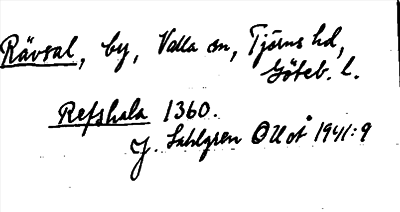 Rävsal, by, Valla sn, Tjörns hd,
Göteb. l.
Refshala 1360.
J. Sahlgren OUoÅ 1941:9